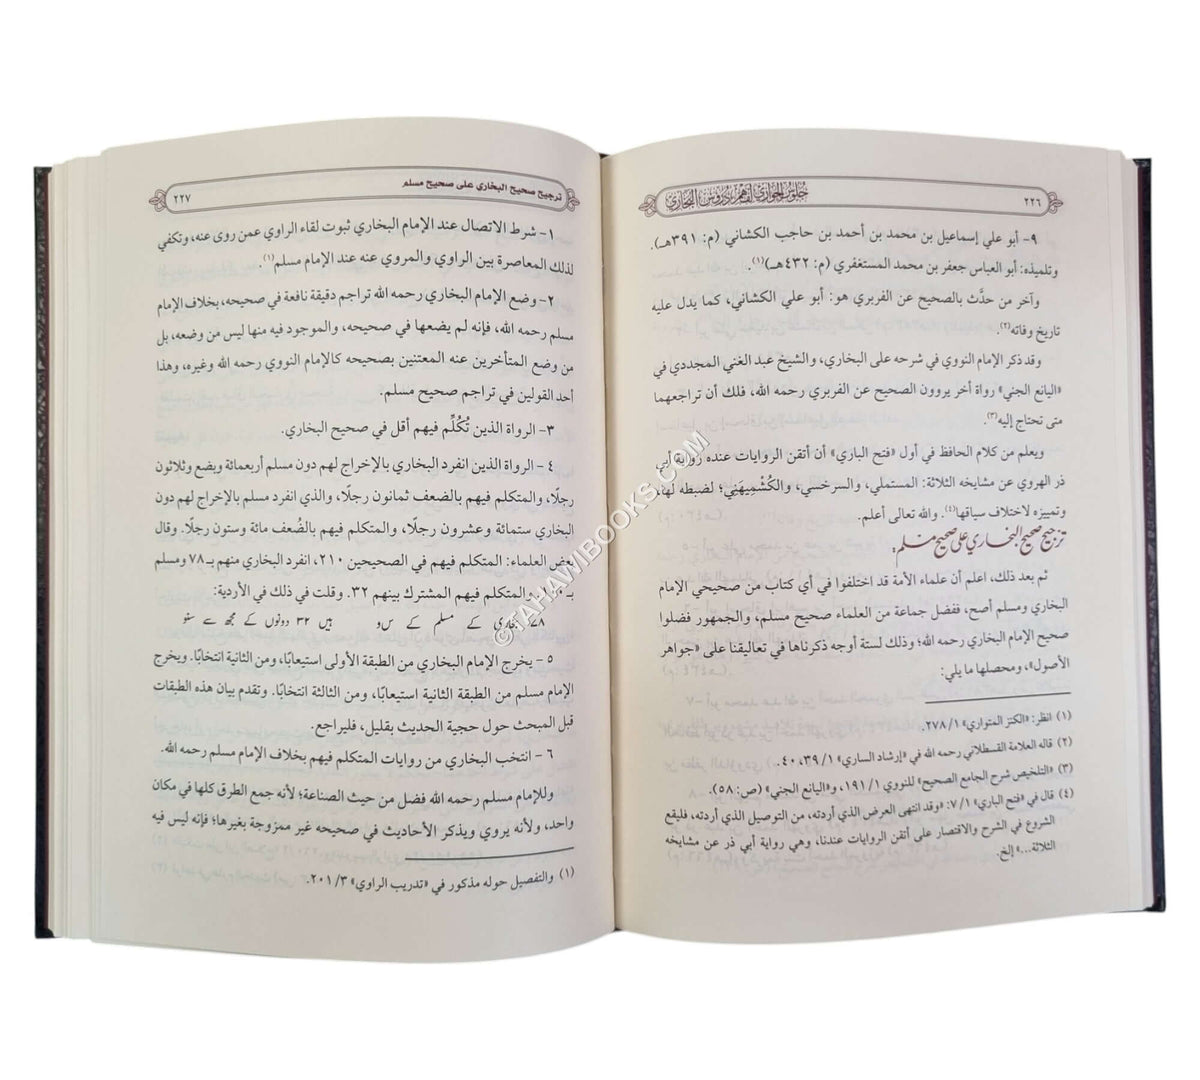 ٢٢٦
جلوس الجواري لفاهم دروس البخاري
٩- أبو علي إسماعيل بن محمد بن أحمد بن حاجب الكشاني (م: ٣٩١هـ).
وتلميذه: أبو العباس جعفر بن محمد المستغفري (م: ٤٣٢هـ)(١).
وآخر من حدَّث بالصحيح عن الفربري هو: أبو علي الكشاني، كما يدل عليه
تاريخ وفاته(٢).
وقد ذكر الإمام النووي في شرحه على البخاري، والشيخ عبد الغني المجددي في
«اليانع الجني» رواة أخر يروون الصحيح عن الفربري رحمه الله، فلك أن تراجعهما
متى تحتاج إليه(٣).
ويعلم من كلام الحافظ في أول «فتح الباري» أن أتقن الروايات عنده رواية أبي
ذر الهروي عن مشايخه الثلاثة: المستملي، والسرخسي، والكُشْمِيهَني؛ لضبطه لها،
وتمييزه لاختلاف سياقها(٤). والله تعالى أعلم.
ترجيح صحيح البخاري على صحيح مسلم:
ثم بعد ذلك، اعلم أن علماء الأمة قد اختلفوا في أي كتاب من صحيحي الإمام
البخاري ومسلم أصح، ففضل جماعة من العلماء صحيح مسلم، والجمهور فضلوا
صحيح الإمام البخاري رحمه الله؛ وذلك لستة أوجه ذكرناها في تعاليقنا على «جواهر
الأصول»، ومحصلها ما يلي:
(١) انظر: «الكنز المتواري» ٢٧٨/١.
(٢) قاله العلامة القسطلاني رحمه الله في «إرشاد الساري» ٣٩/١، ٤٠.
(٣) «التلخيص شرح الجامع الصحيح» للنووي ١٩١/١، و«اليانع الجني» (ص: ٥٨).
(٤) قال في «فتح الباري» ٧/١: «وقد انتهى العرض الذي أردته، من التوصيل الذي أردته، فليقع
الشروع في الشرح والاقتصار على أتقن الروايات عندنا، وهي رواية أبي ذر عن مشايخه
الثلاثة...» إلخ.
ترجيح صحيح البخاري على صحيح مسلم
٢٢٧
١- شرط الاتصال عند الإمام البخاري ثبوت لقاء الراوي عمن روى عنه، وتكفي
لذلك المعاصرة بين الراوي والمروي عنه عند الإمام مسلم(١).
٢- وضع الإمام البخاري رحمه الله تراجم دقيقة نافعة في صحيحه، بخلاف الإمام
مسلم رحمه الله، فإنه لم يضعها في صحيحه، والموجود فيه منها ليس من وضعه، بل
من وضع المتأخرين عنه المعتنين بصحيحه كالإمام النووي رحمه الله وغيره، وهذا
أحد القولين في تراجم صحيح مسلم.
٣- الرواة الذين تُكُلِّم فيهم أقل في صحيح البخاري.
٤- الرواة الذين انفرد البخاري بالإخراج لهم دون مسلم أربعمائة وبضع وثلاثون
رجلًا، والمتكلم فيهم بالضعف ثمانون رجلًا، والذي انفرد مسلم بالإخراج لهم دون
البخاري ستمائة وعشرون رجلًا، والمتكلم فيهم بالضُعف مائة وستون رجلًا. وقال
بعض العلماء: المتكلم فيهم في الصحيحين ٢١٠، انفرد البخاري منهم بـ٧٨ ومسلم
والمتكلم فيهم المشترك بينهم ٣٢. وقلت في ذلك في الأردية:
بخاری کے مسلم کے س و ہیں ٣٢ دونوں کے مجھ سے سنو
٥- يخرج الإمام البخاري من الطبقة الأولى استيعابًا، ومن الثانية انتخابًا. ويخرج
الإمام مسلم من الطبقة الثانية استيعابًا، ومن الثالثة انتخابًا. وتقدم بيان هذه الطبقات
قبل المبحث حول حجية الحديث بقليل، فليراجع.
٦- انتخب البخاري من روايات المتكلم فيهم بخلاف الإمام مسلم رحمه الله.
وللإمام مسلم رحمه الله فضل من حيث الصناعة؛ لأنه جمع الطرق كلها في مكان
واحد، ولأنه يروي ويذكر الأحاديث في صحيحه غير ممزوجة بغيرها؛ فإنه ليس فيه
(١) والتفصيل حوله مذكور في «تدريب الراوي» ٢٠١/٣.
©TAHAWIBOOKS.COM